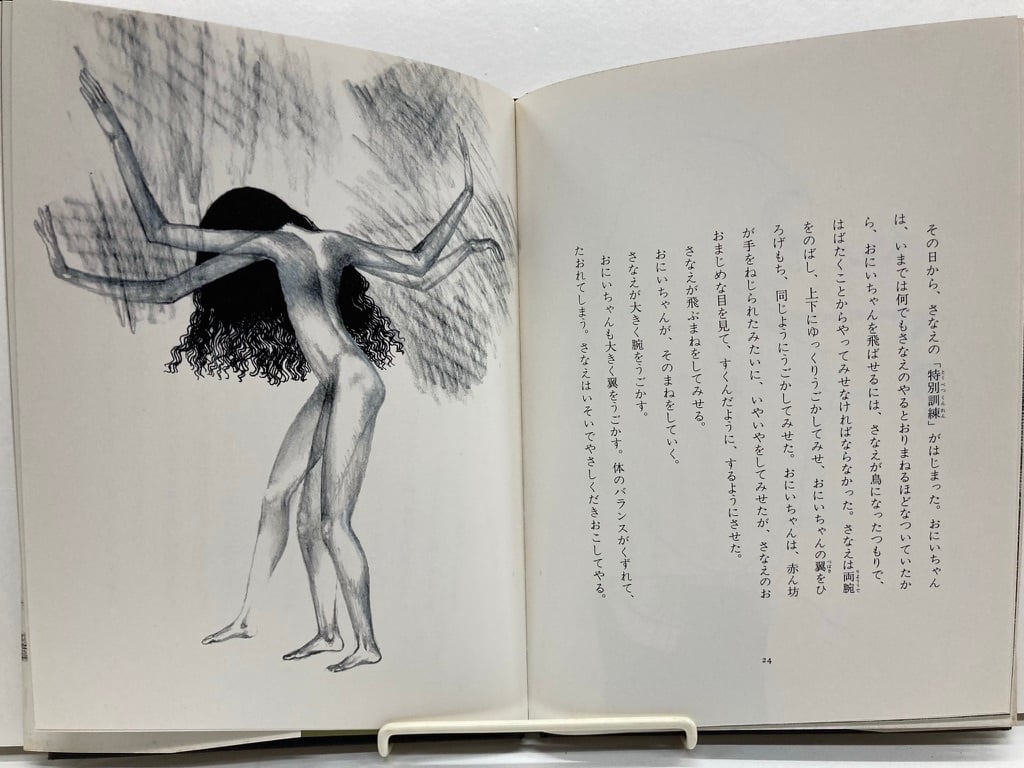 その日から、さなえの「特別訓練」がはじまった。おにいちゃん
は、いまでは何でもさなえのやるとおりまねるほどなついていたか
ら、おにいちゃんを飛ばせるには、さなえが鳥になったつもりで、
はばたくことからやってみせなければならなかった。さなえは両腕
をのばし、上下にゆっくりうごかしてみせ、おにいちゃんの翼をひ
ろげもち、同じようにうごかしてみせた。おにいちゃんは、赤ん坊
が手をねじられたみたいに、いやいやをしてみせたが、さなえのお
おまじめな目を見て、すくんだように、するようにさせた。
さなえが飛ぶまねをしてみせる。
おにいちゃんが、そのまねをしていく。
さなえが大きく腕をうごかす。
おにいちゃんも大きく翼をうごかす。体のバランスがくずれて、
たおれてしまう。さなえはいそいでやさしくだきおこしてやる。
24